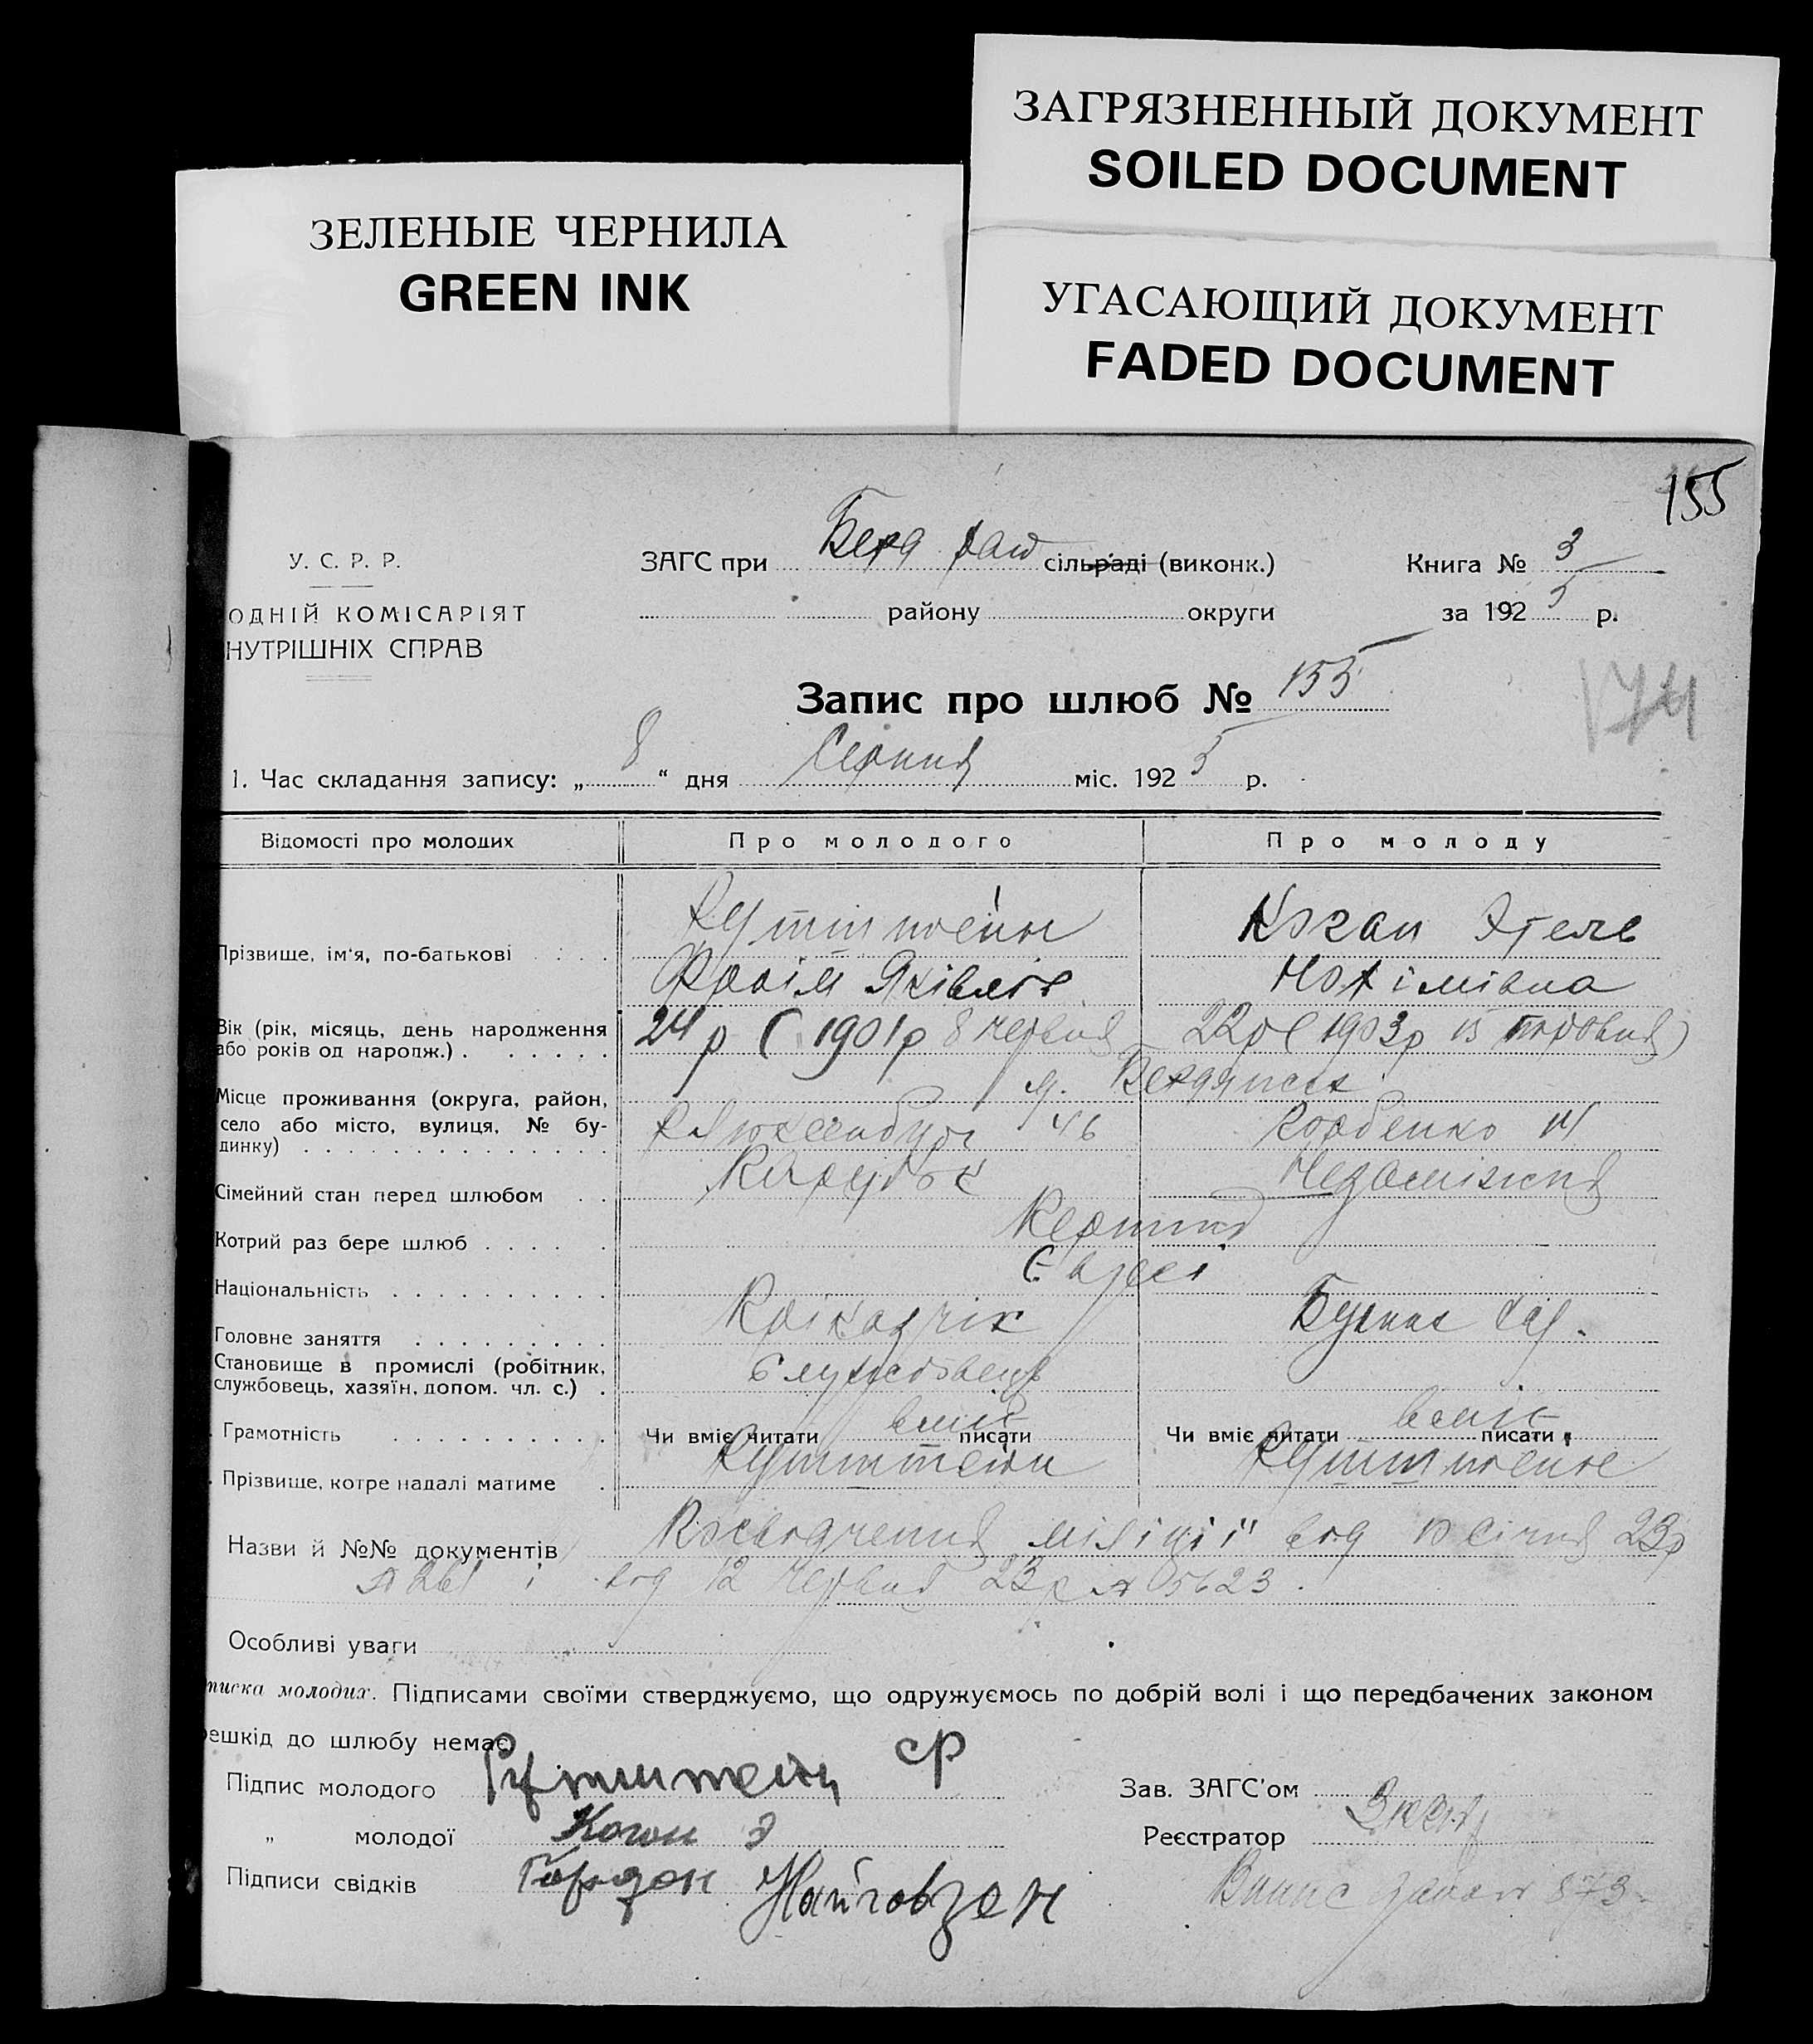 ЗАГРЯЗНЕННЫЙ ДОКУМЕНТ
SOILED DOCUMENT
ЗЕЛЕНЫЕ ЧЕРНИЛА
GREEN INK
УГАСАЮЩИЙ ДОКУМЕНТ
FADED DOCUMENT
155
У. С. Р. Р.
ЗАГС при Берд сільраді (виконк.)
Книга № 3
ОДНІЙ КОМІСАРІЯТ
району округи
за 1925 р.
НУТРІШНІХ СПРАВ
Запис про шлюб № 155
174
1. Час складання запису: „ 8 “ дня Серпня міс. 1925 р.
Відомості про молодих Про молодого Про молоду
Прізвище, ім'я, по-батькові . . . .
Рутштейн
Коган Этель
Вік (рік, місяць, день народження
або років од народж.) . . . . . .
24 р ( 1901 р 8 червня
22 р ( 1903 р 15
м. Бердянськ
Місце проживання (округа, район,
село або місто, вулиця, № бу-
динку) . . . . . . . . . . . . . .
Р Люксембург 46
Горбенко
Сімейний стан перед шлюбом . .
Парубок
Незаміжня
Котрий раз бере шлюб . . . . .
Перший
Національність . . . . . . . . . .
Євреї
Головне заняття . . . . . . . . .
Прікажчік
Становище в промислі (робітник,
службовець, хазяїн, допом. чл. с.) .
Службовець
Грамотність . . . . . . . . . .
Чи вміє читати вміє писати
Чи вміє читати вміє писати
Прізвище, котре надалі матиме .
Рутштейн
Рутштейн
Назви й №№ документів Посвідчення міліції від 10 січня 23р
і від 12 червня 23р № 5623.
Особливі уваги
писка молодих. Підписами своїми стверджуємо, що одружуємось по добрій волі і що передбачених законом
решкід до шлюбу немає
Підпис молодого Рутштейн
Зав. ЗАГС'ом
„ молодої Коган Э
Реєстратор
Підписи свідків Гордон